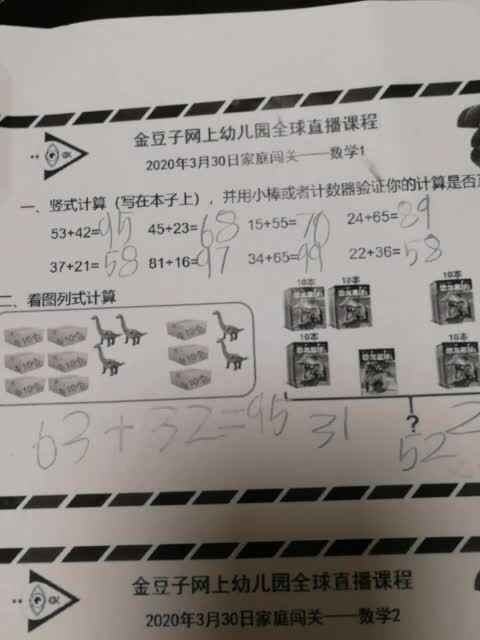 金豆子网上幼儿园全球直播课程
2020年3月30日家庭闯关——数学1
一、竖式计算（写在本子上），并用小棒或者计数器验证你的计算是否
53+42=95 45+23=68 15+55=70 24+65=89
37+21=58 81+16=97 34+65=99 22+36=58
二、看图列式计算
10本 10本 10本
10本 10本
63+32=95 31 ? 52
金豆子网上幼儿园全球直播课程
2020年3月30日家庭闯关——数学2